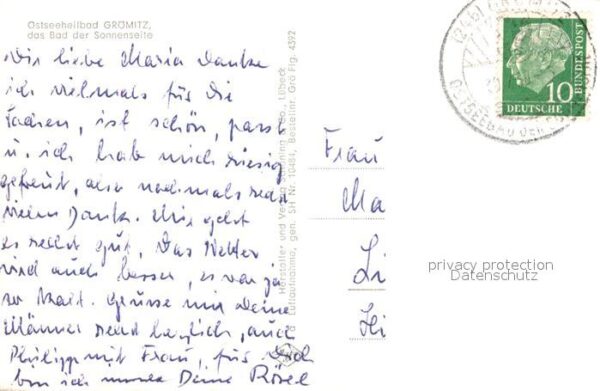 Ostseeheilbad GRÖMITZ,
das Bad der Sonnenseite
Dir liebe Maria danke
ich vielmals für die
Sachen, ist schön, passt
u. ich hab mich riesig
gefreut, also nochmals recht
vielen Dank. Mir geht
es recht gut, Das Wetter
wird auch besser, es war ja
so kalt. Grüsse mir Deine
Männer recht herzlich, auch
Philipp mit Frau, für Dich
bin ich immer Deine Rösel
Hersteller und Verlag Schöning & Co., Lübeck
Luftaufnahme, gen. SH Nr. 10481, Bearbeiter, Gro Flg. 4592
Frau
Ma
Li
Hi
(24b) GRÖMITZ
OSTSEEBAD DER
10
DEUTSCHE
BUNDESPOST
privacy protection
Datenschutz